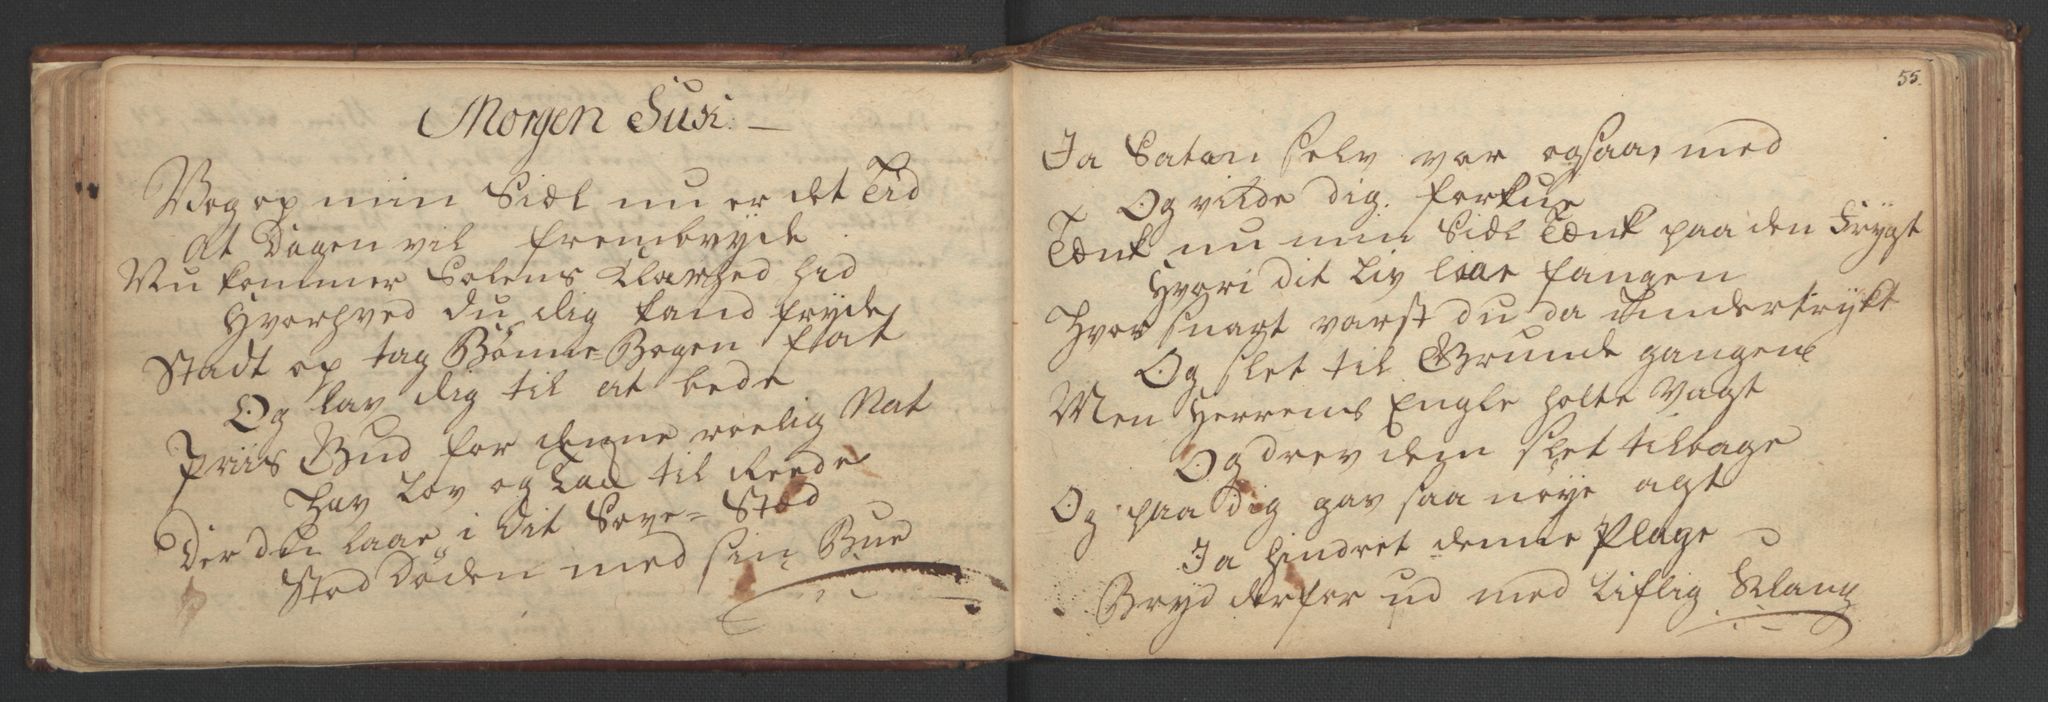 Morgen Suk. —
Vog op min Siæl nu er det Tid
At Dagen vil frembryde
Nu kommer Solens Klarhed hid
Hvorhved du dig kand fryde
Stadt op tag Bønne=Bogen fat
Og lav dig til at bede
Priis Gud for denne roelig Nat
Hav Lov og Tak til Reede
Der du laae i dit Sove=Stæd
Stod Døden med sin Bue
55.
Ja Satan selv var ogsaa med
Og vilde dig forkue
Tænk nu min Siæl Tænk paa den Frygt
Hvori dit Liv laae fangen
Hvor snart varst du da undertrykt
Og slet til Grunde gangen
Men Herrens Engle holte Vagt
Og drev dem slet tilbage
Og paa dig gav saa nøye agt
Ja hindret denne Plage
Bryd derfor ud med Liflig Klang